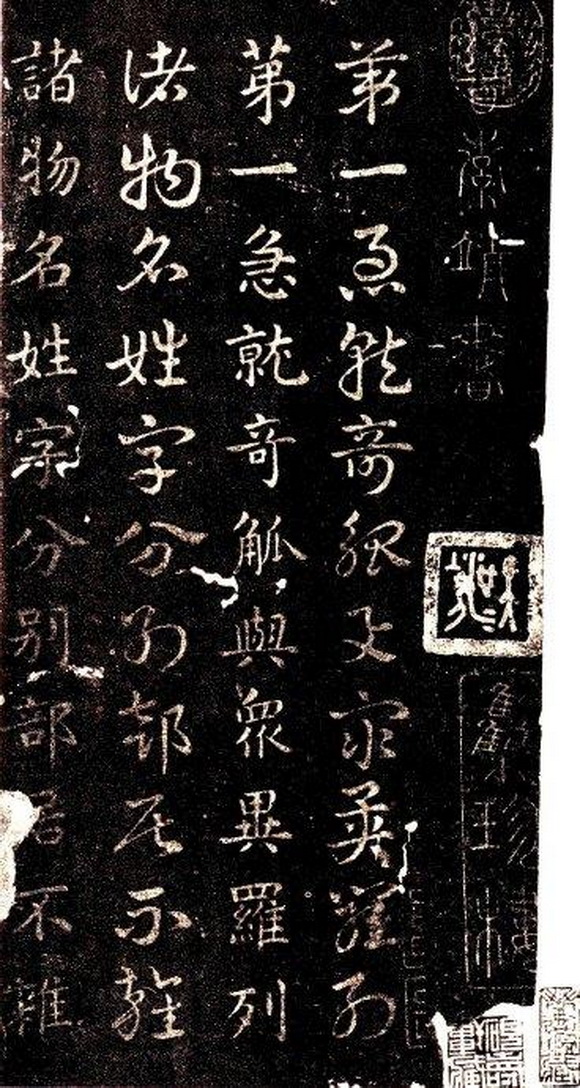 第一急就奇觚與衆異羅列
第一急就奇觚與衆異羅列
諸物名姓字分别部居不雜
諸物名姓字分别部居不雜